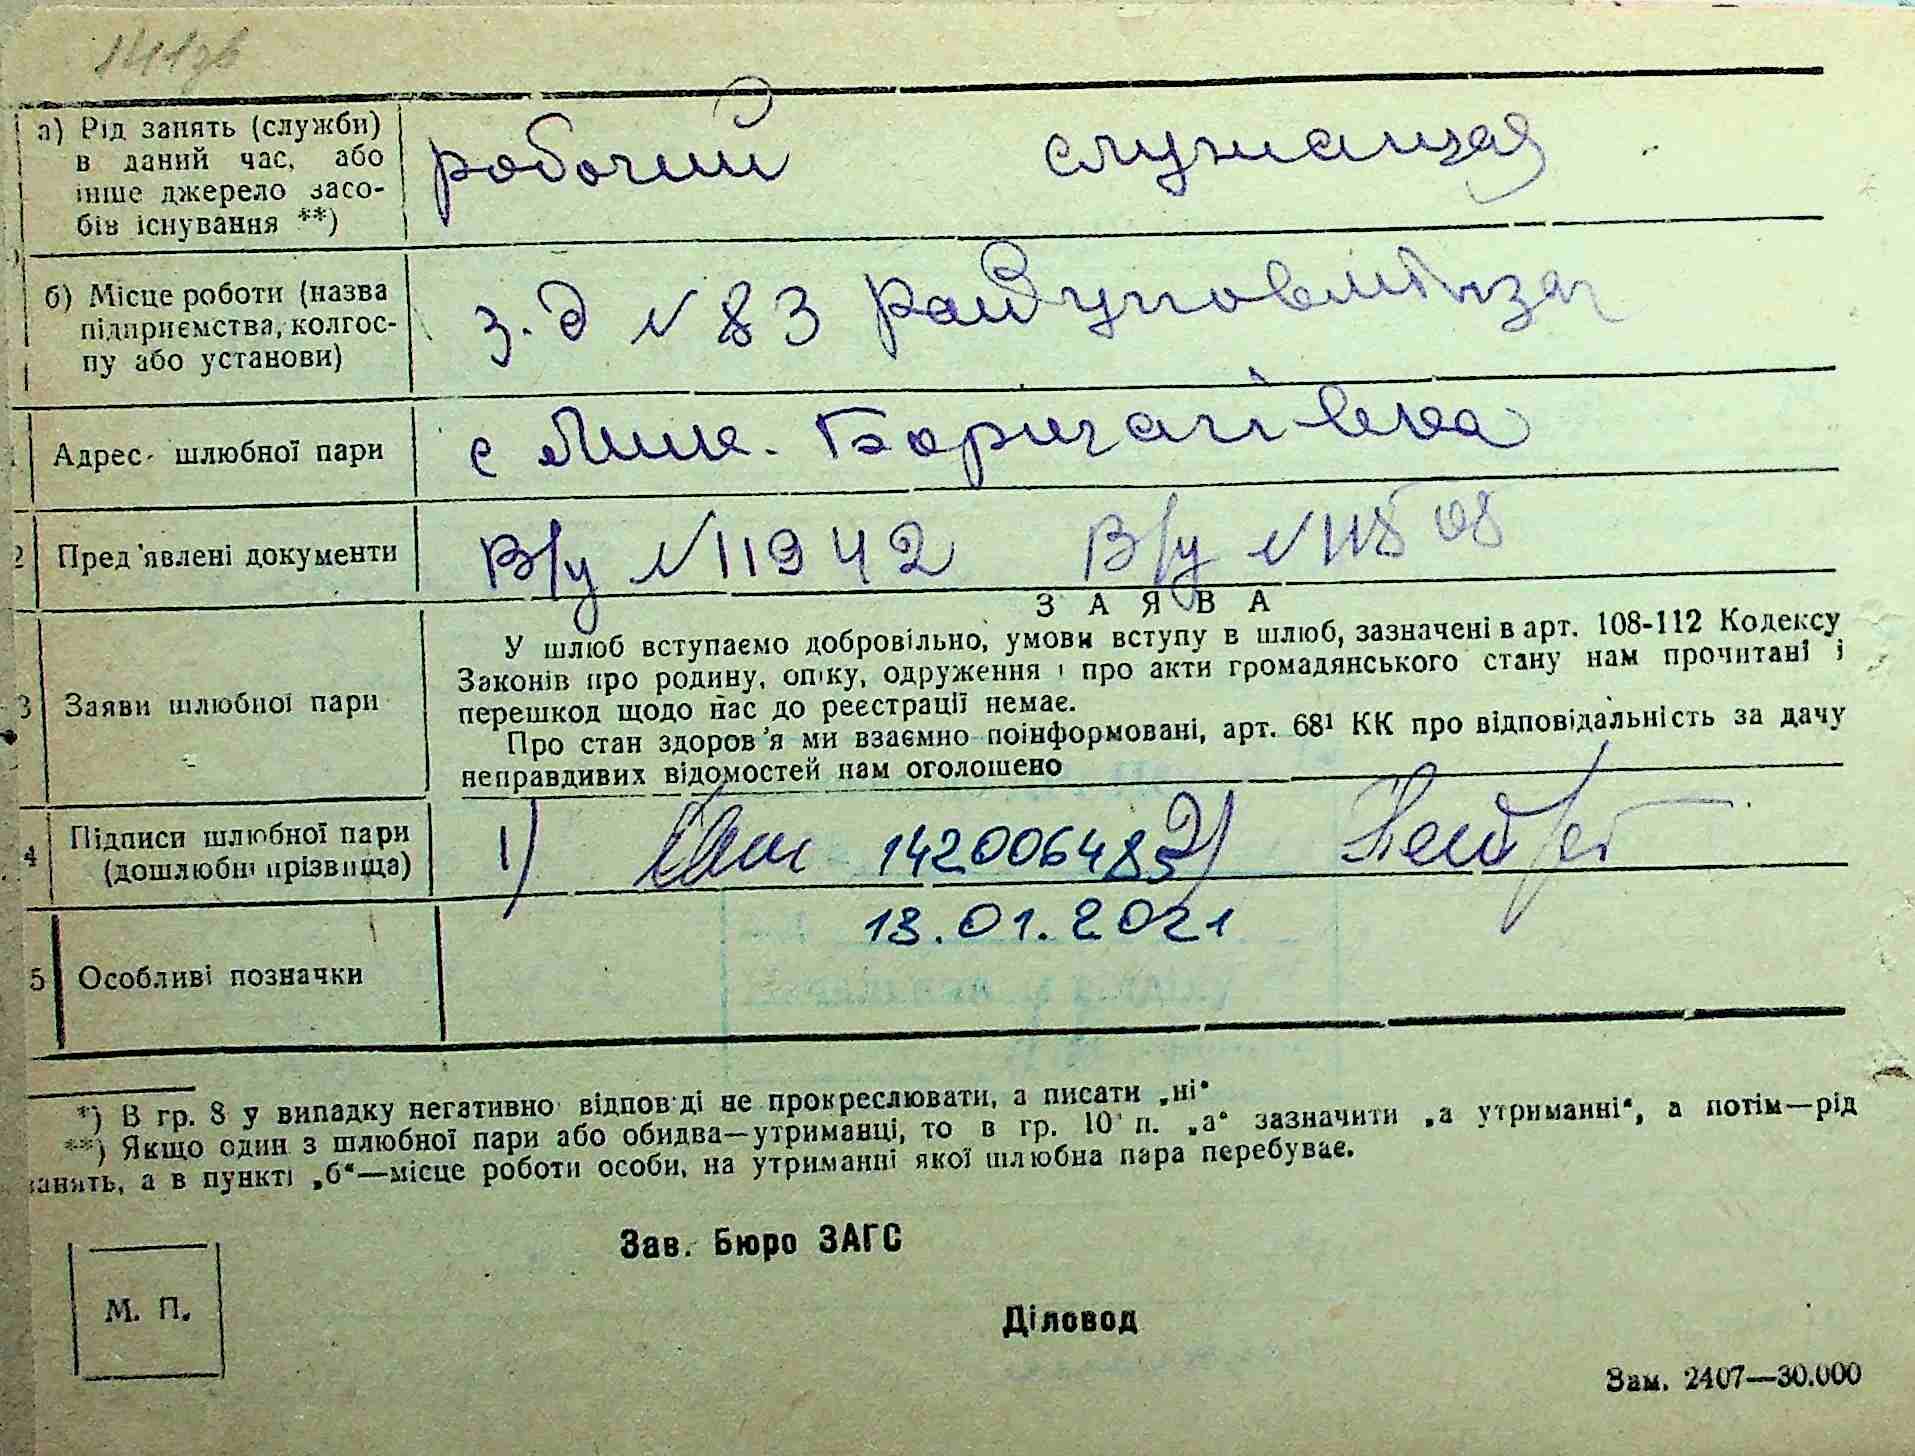 141зв
а) Рід занять (служби)
в даний час, або
інше джерело засо-
бів існування **)
робочий служащая
б) Місце роботи (назва
підприємства, колгос-
пу або установи)
з.д №83
Адрес шлюбної пари
с Мик. Борщагівка
2 Пред'явлені документи
В/у №11942 В/у
ЗАЯВА
3 Заяви шлюбної пари
У шлюб вступаємо добровільно, умови вступу в шлюб, зазначені в арт. 108-112 Кодексу
Законів про родину, опіку, одруження і про акти громадянського стану нам прочитані і
перешкод щодо нас до реєстрації немає.
Про стан здоров'я ми взаємно поінформовані, арт. 68¹ КК про відповідальність за дачу
неправдивих відомостей нам оголошено
4 Підписи шлюбної пари
(дошлюбні прізвища)
1) 1420064835 2)
13.01.2021
5 Особливі позначки
*) В гр. 8 у випадку негативно відповіді не прокреслювати, а писати „ні“
**) Якщо один з шлюбної пари або обидва—утриманці, то в гр. 10 п. „а“ зазначити „а утриманні“, а потім—рід
занять, а в пункті „б“—місце роботи особи, на утриманні якої шлюбна пара перебуває.
Зав. Бюро ЗАГС
М. П.
Діловод
Зам. 2407—30.000